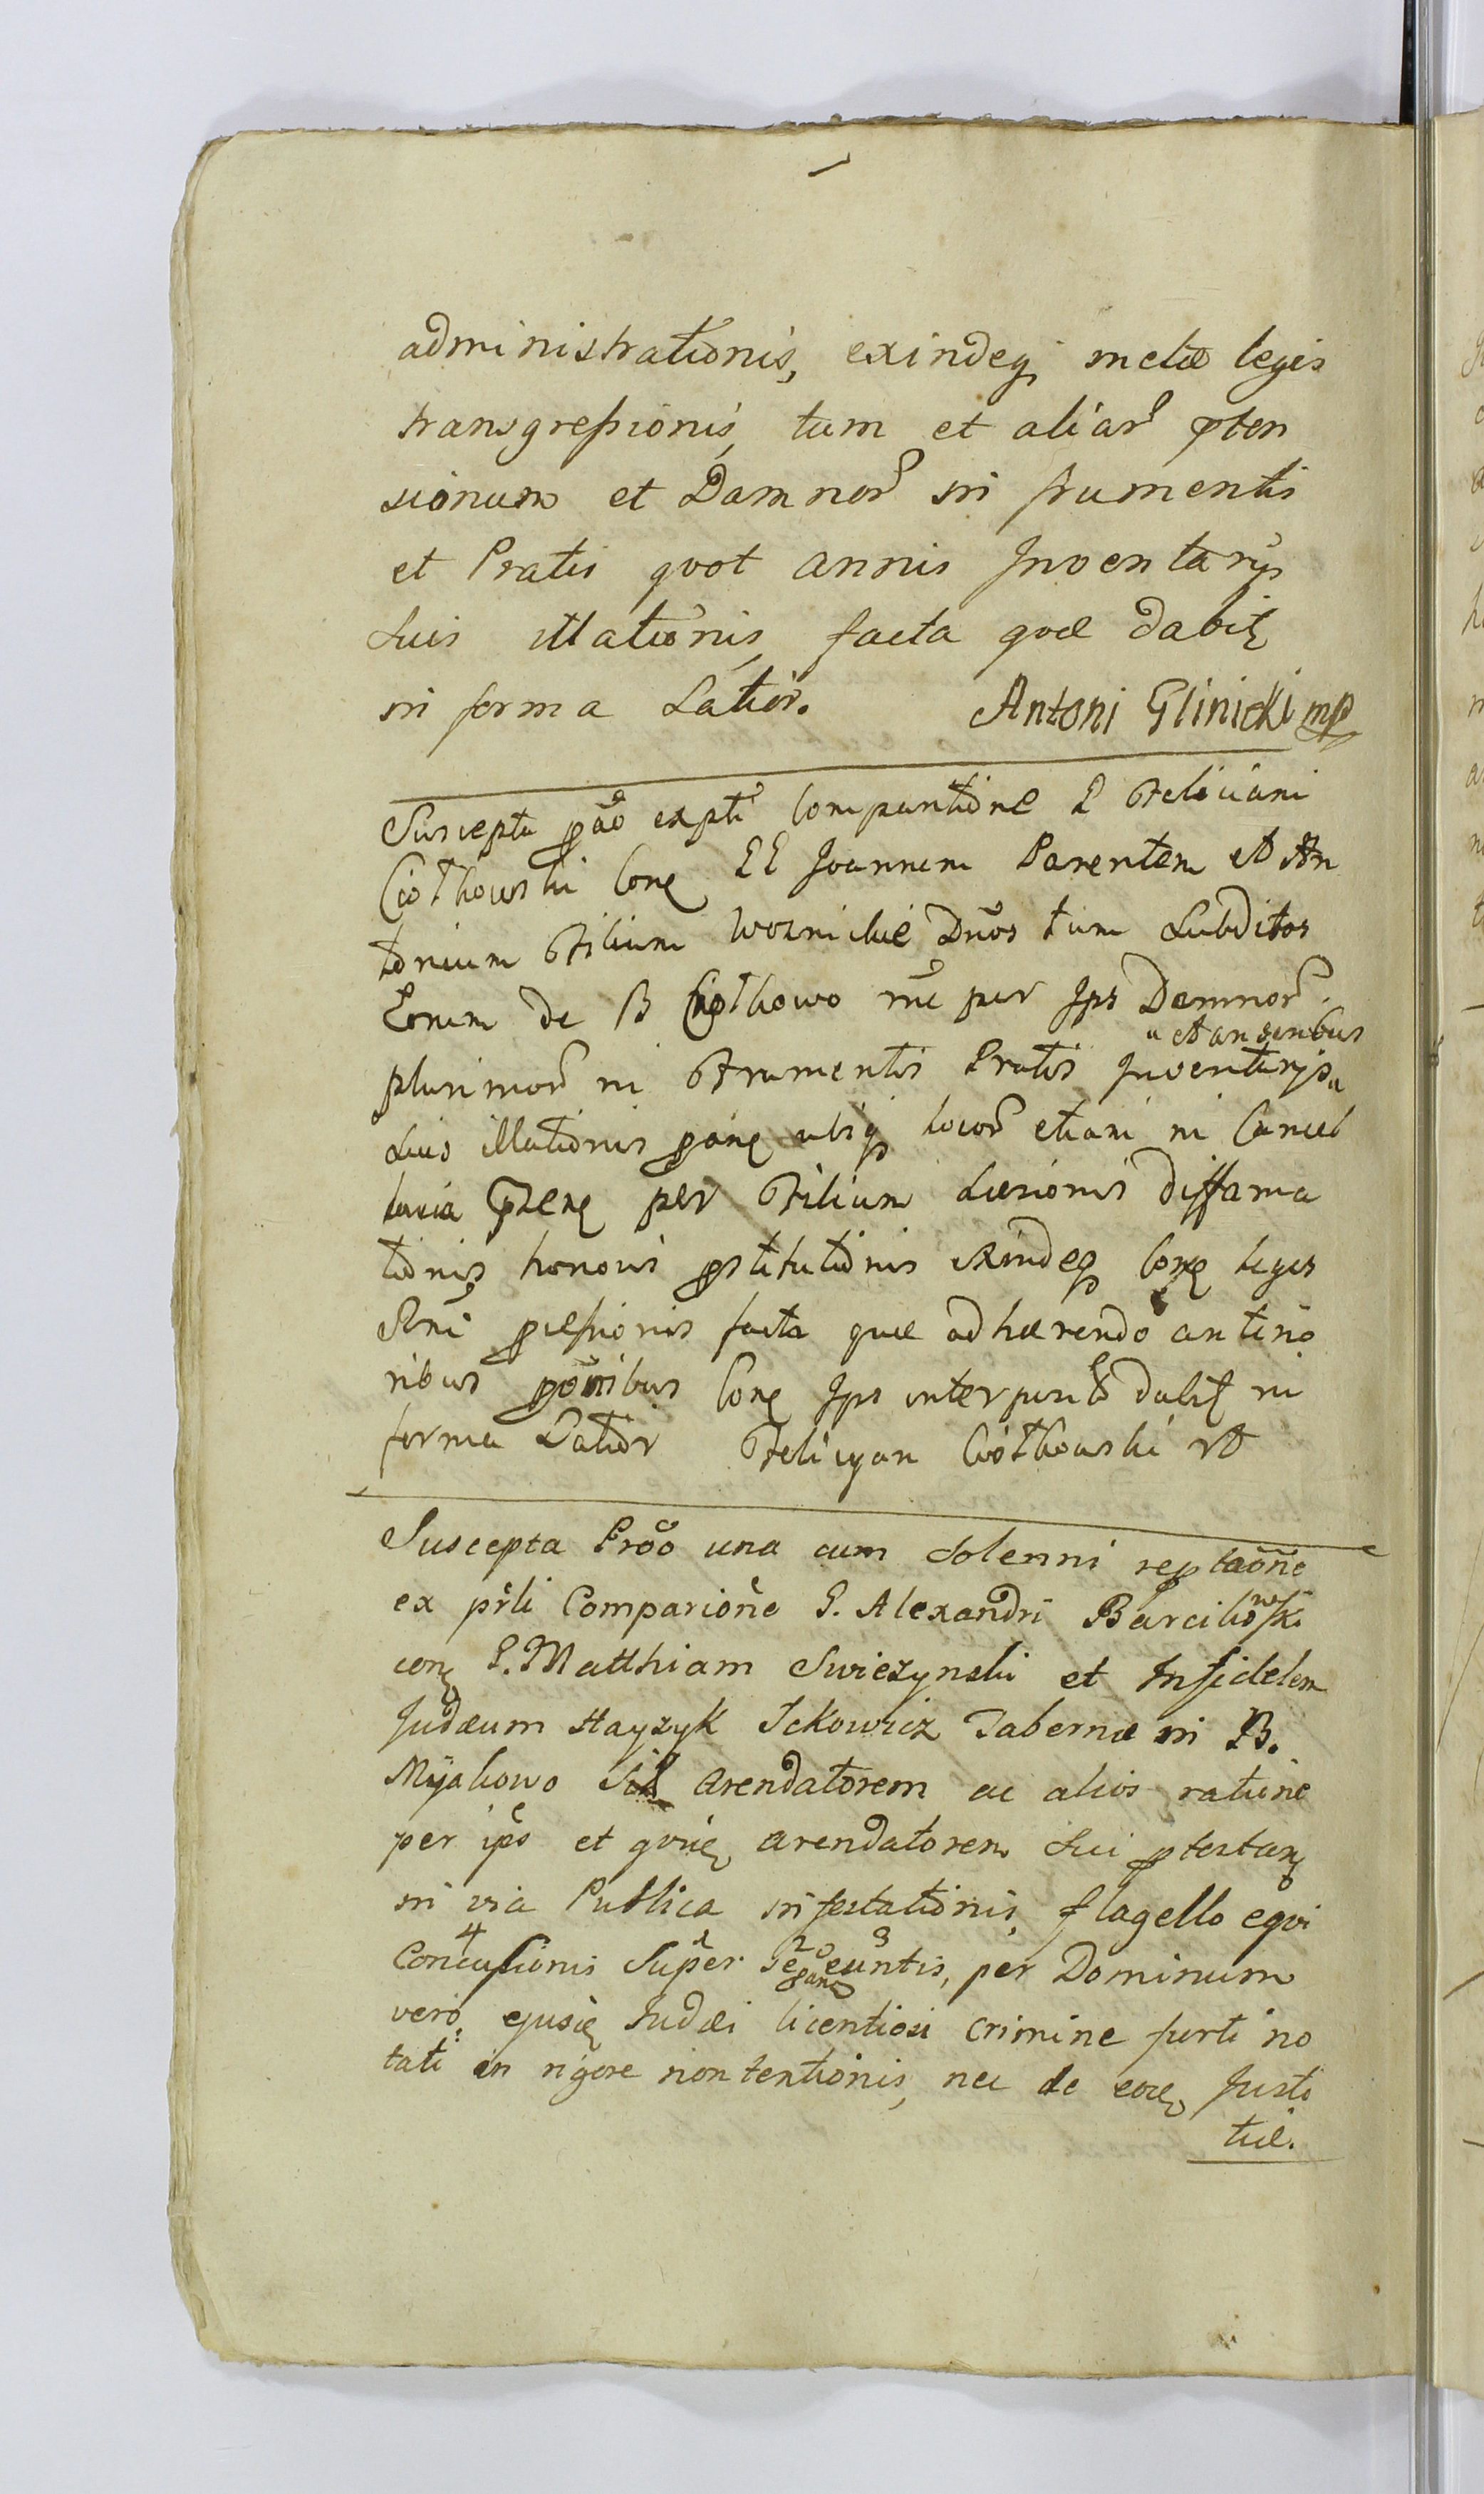 administrationis, exindeq metæ legis
transgressionis, tum et aliar pten
sionum et Damnor in frumentis
et Pratis qvot annis Inventarijs
Suis illationis, facta qvæ dabit
in forma Latior. Antoni Glinicki mp
Suscepta pao expti Comparitione G Feliciani
Ciotkowski Con GG Joannem Parentem et An
tonium Filium Woznickie Dnos tum Subditos
Eorum de B Ciotkowo rne per Ips Damnor
" et anseribus
plurimor in Frumentis Pratis Inventarijs "
Suis illationis ubiq locor etiam in Cancel
laria per Filium Læsionis Diffama
tionis honoris pstitutionis exindeq Con leges
Rni pressionis facta quæ adhærendo anterio
ribus Con Ips interposit dabit in
forma Latior Felicyan Ciotkowski
Suscepta Proo una cum Solenni reptaone
ex prli Comparione G. Alexandri Barcikowski
con G. Matthiam Swiezynski et Infidelem
Judæum Hayzyk Ickowicz Tabernæ in B.
Myakowo arendatorem ac alios ratione
per ips et arendatorem Sui ptestan
in via Publica infestationis, flagello eqvi
Concussionis Super se euntis, per Dominum
vero Judæi licentiosi crimine furti no
tati in rigore non tentionis, nec de Justi
tiæ.